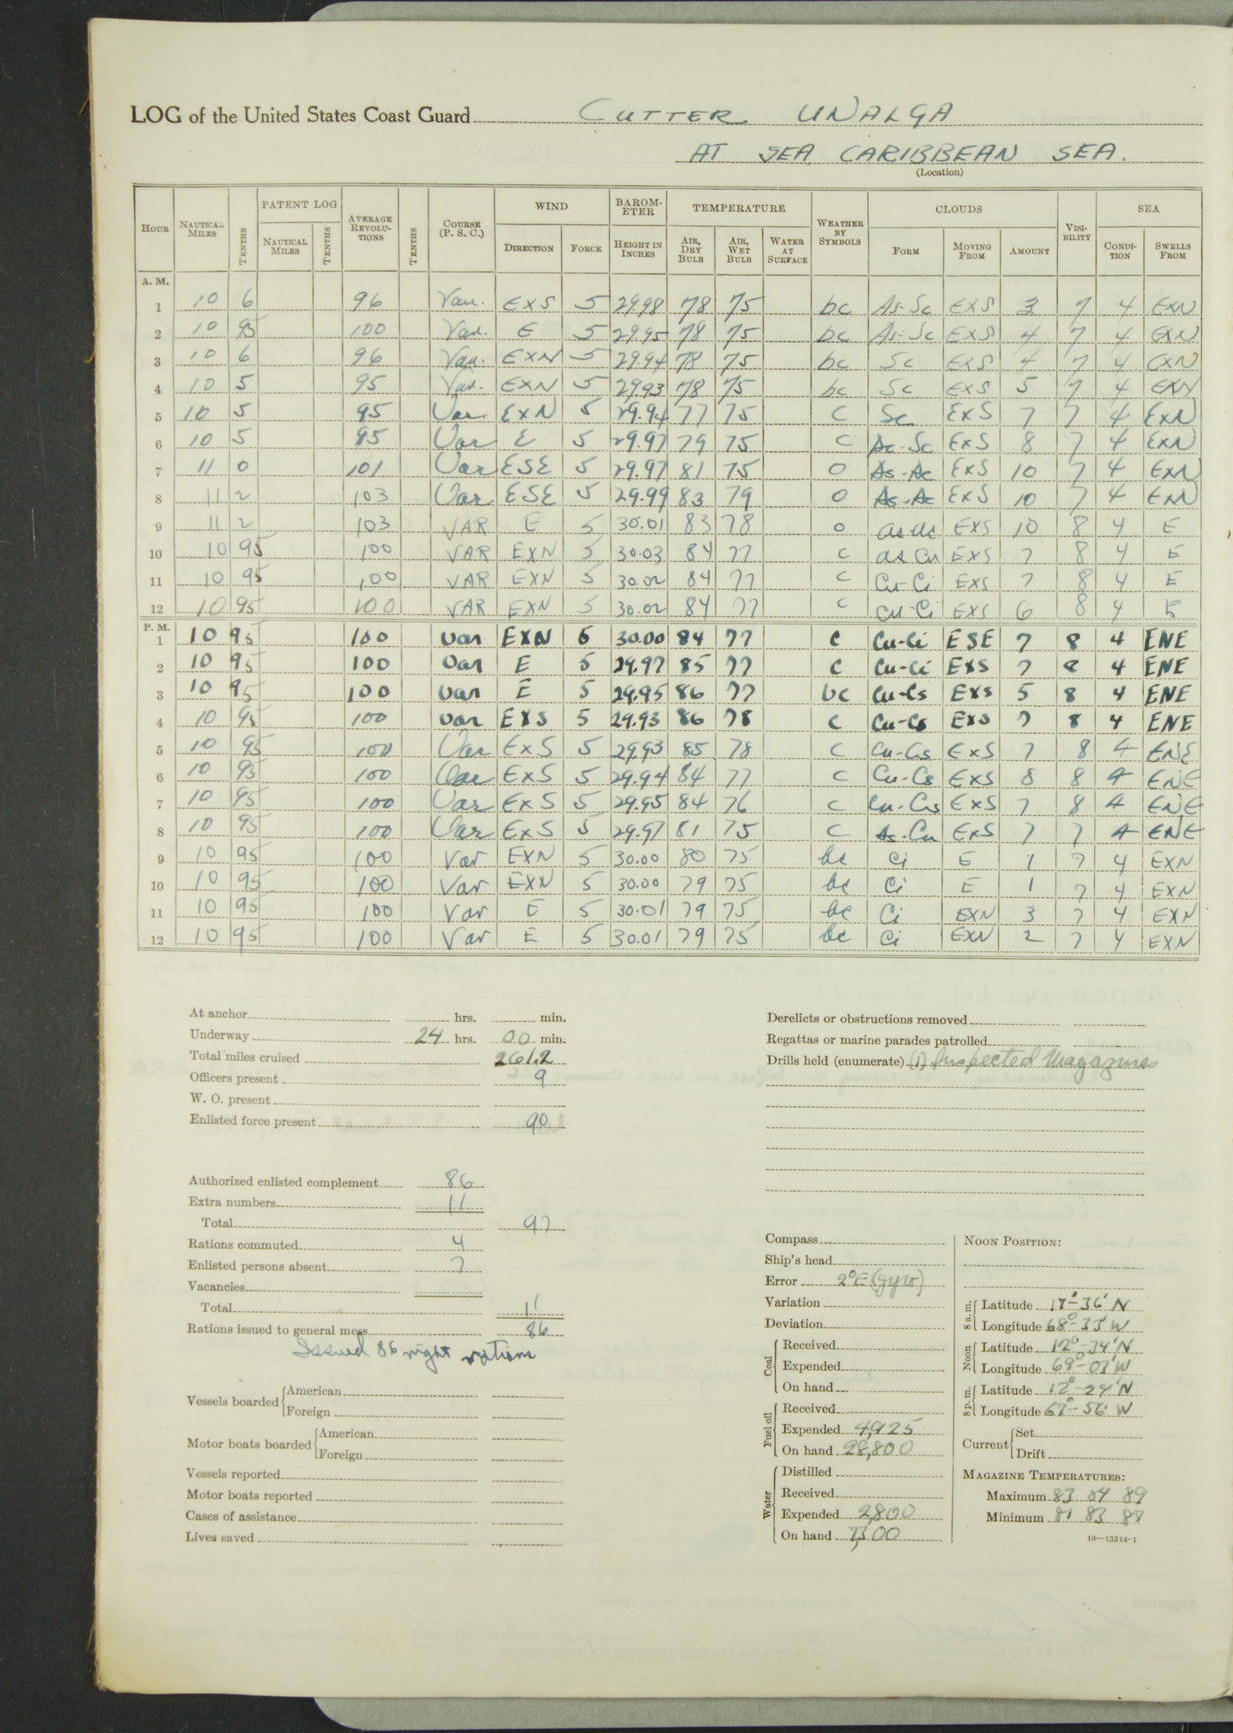 LOG of the United States Coast Guard CUTTER UNALGA
AT SEA CARIBBEAN SEA.
(Location)
HOUR NAUTICAL MILES TENTHS PATENT LOG NAUTICAL MILES TENTHS AVERAGE REVOLUTIONS TENTHS COURSE (P. S. C.) WIND DIRECTION FORCE BAROMETER HEIGHT IN INCHES TEMPERATURE AIR, DRY BULB AIR, WET BULB WATER AT SURFACE WEATHER BY SYMBOLS CLOUDS FORM MOVING FROM AMOUNT VISIBILITY SEA CONDITION SWELLS FROM
A. M.
1 10 6 96 Var. EXS 5 29.98 78 75 bc As-Sc EXS 3 7 4 EXN
2 10 95 100 Var. E 5 29.95 78 75 bc As-Sc EXS 4 7 4 EXN
3 10 6 96 Var. EXN 5 29.94 78 75 bc Sc EXS 4 7 4 EXN
4 10 5 95 Var. EXN 5 29.93 78 75 bc Sc EXS 5 7 4 EXN
5 10 5 95 Var EXN 5 29.94 77 75 C Sc EXS 7 7 4 EXN
6 10 5 95 Var E 5 29.97 79 75 C Ac-Sc EXS 8 7 4 EXN
7 11 0 101 Var ESE 5 29.97 81 75 O As-Ac EXS 10 7 4 EXN
8 11 2 103 Var ESE 5 29.99 83 79 O As-Ac EXS 10 7 4 EXN
9 11 2 103 VAR E 5 30.01 83 78 O as ac EXS 10 8 4 E
10 10 95 100 VAR EXN 5 30.03 84 77 C as Cu EXS 7 8 4 E
11 10 95 100 VAR EXN 5 30.02 84 77 C Cu-Ci EXS 7 8 4 E
12 10 95 100 VAR EXN 5 30.02 84 77 C Cu-Ci EXS 6 8 4 E
P. M.
1 10 95 100 Var EXN 5 30.00 84 77 C Cu-Ci ESE 7 8 4 ENE
2 10 95 100 Var E 5 29.97 85 77 C Cu-Ci EXS 7 8 4 ENE
3 10 95 100 Var E 5 29.95 86 77 bc Cu-Cs EXS 5 8 4 ENE
4 10 95 100 Var EXS 5 29.93 86 78 C Cu-Cs EXS 7 8 4 ENE
5 10 95 100 Var EXS 5 29.93 85 78 C Cu-Cs EXS 7 8 4 ENE
6 10 95 100 Var EXS 5 29.94 84 77 C Cu-Cs EXS 8 8 4 ENE
7 10 95 100 Var EXS 5 29.95 84 76 C Cu-Cs EXS 7 8 4 ENE
8 10 95 100 Var EXS 5 29.97 81 75 C As-Cu EXS 7 7 4 ENE
9 10 95 100 Var EXN 5 30.00 80 75 bc Ci E 1 7 4 EXN
10 10 95 100 Var EXN 5 30.00 79 75 bc Ci E 1 7 4 EXN
11 10 95 100 Var E 5 30.01 79 75 bc Ci EXN 3 7 4 EXN
12 10 95 100 Var E 5 30.01 79 75 bc Ci EXN 2 7 4 EXN
At anchor hrs. min.
Underway 24 hrs. 00 min.
Total miles cruised 261.2
Officers present 9
W. O. present
Enlisted force present 90
Authorized enlisted complement 86
Extra numbers 11
Total 97
Rations commuted 4
Enlisted persons absent 7
Vacancies
Total 11
Rations issued to general mess 86
Issued 86 night rations
Vessels boarded American
Foreign
Motor boats boarded American
Foreign
Vessels reported
Motor boats reported
Cases of assistance
Lives saved
Derelicts or obstructions removed
Regattas or marine parades patrolled
Drills held (enumerate) (1) Inspected Magazines
Compass
Ship's head
Error 2°E (gyro)
Variation
Deviation
Coal Received
Expended
On hand
Fuel oil Received
Expended 4,925
On hand 28,800
Water Distilled
Received
Expended 2,800
On hand 7,300
NOON POSITION:
8 a.m. Latitude 17°-36' N
Longitude 68°-33' W
Noon Latitude
Longitude
8 p.m. Latitude
Longitude 67°-56' W
Current Set
Drift
MAGAZINE TEMPERATURES:
Maximum 83 84 89
Minimum 81 83 87
16—13314-1